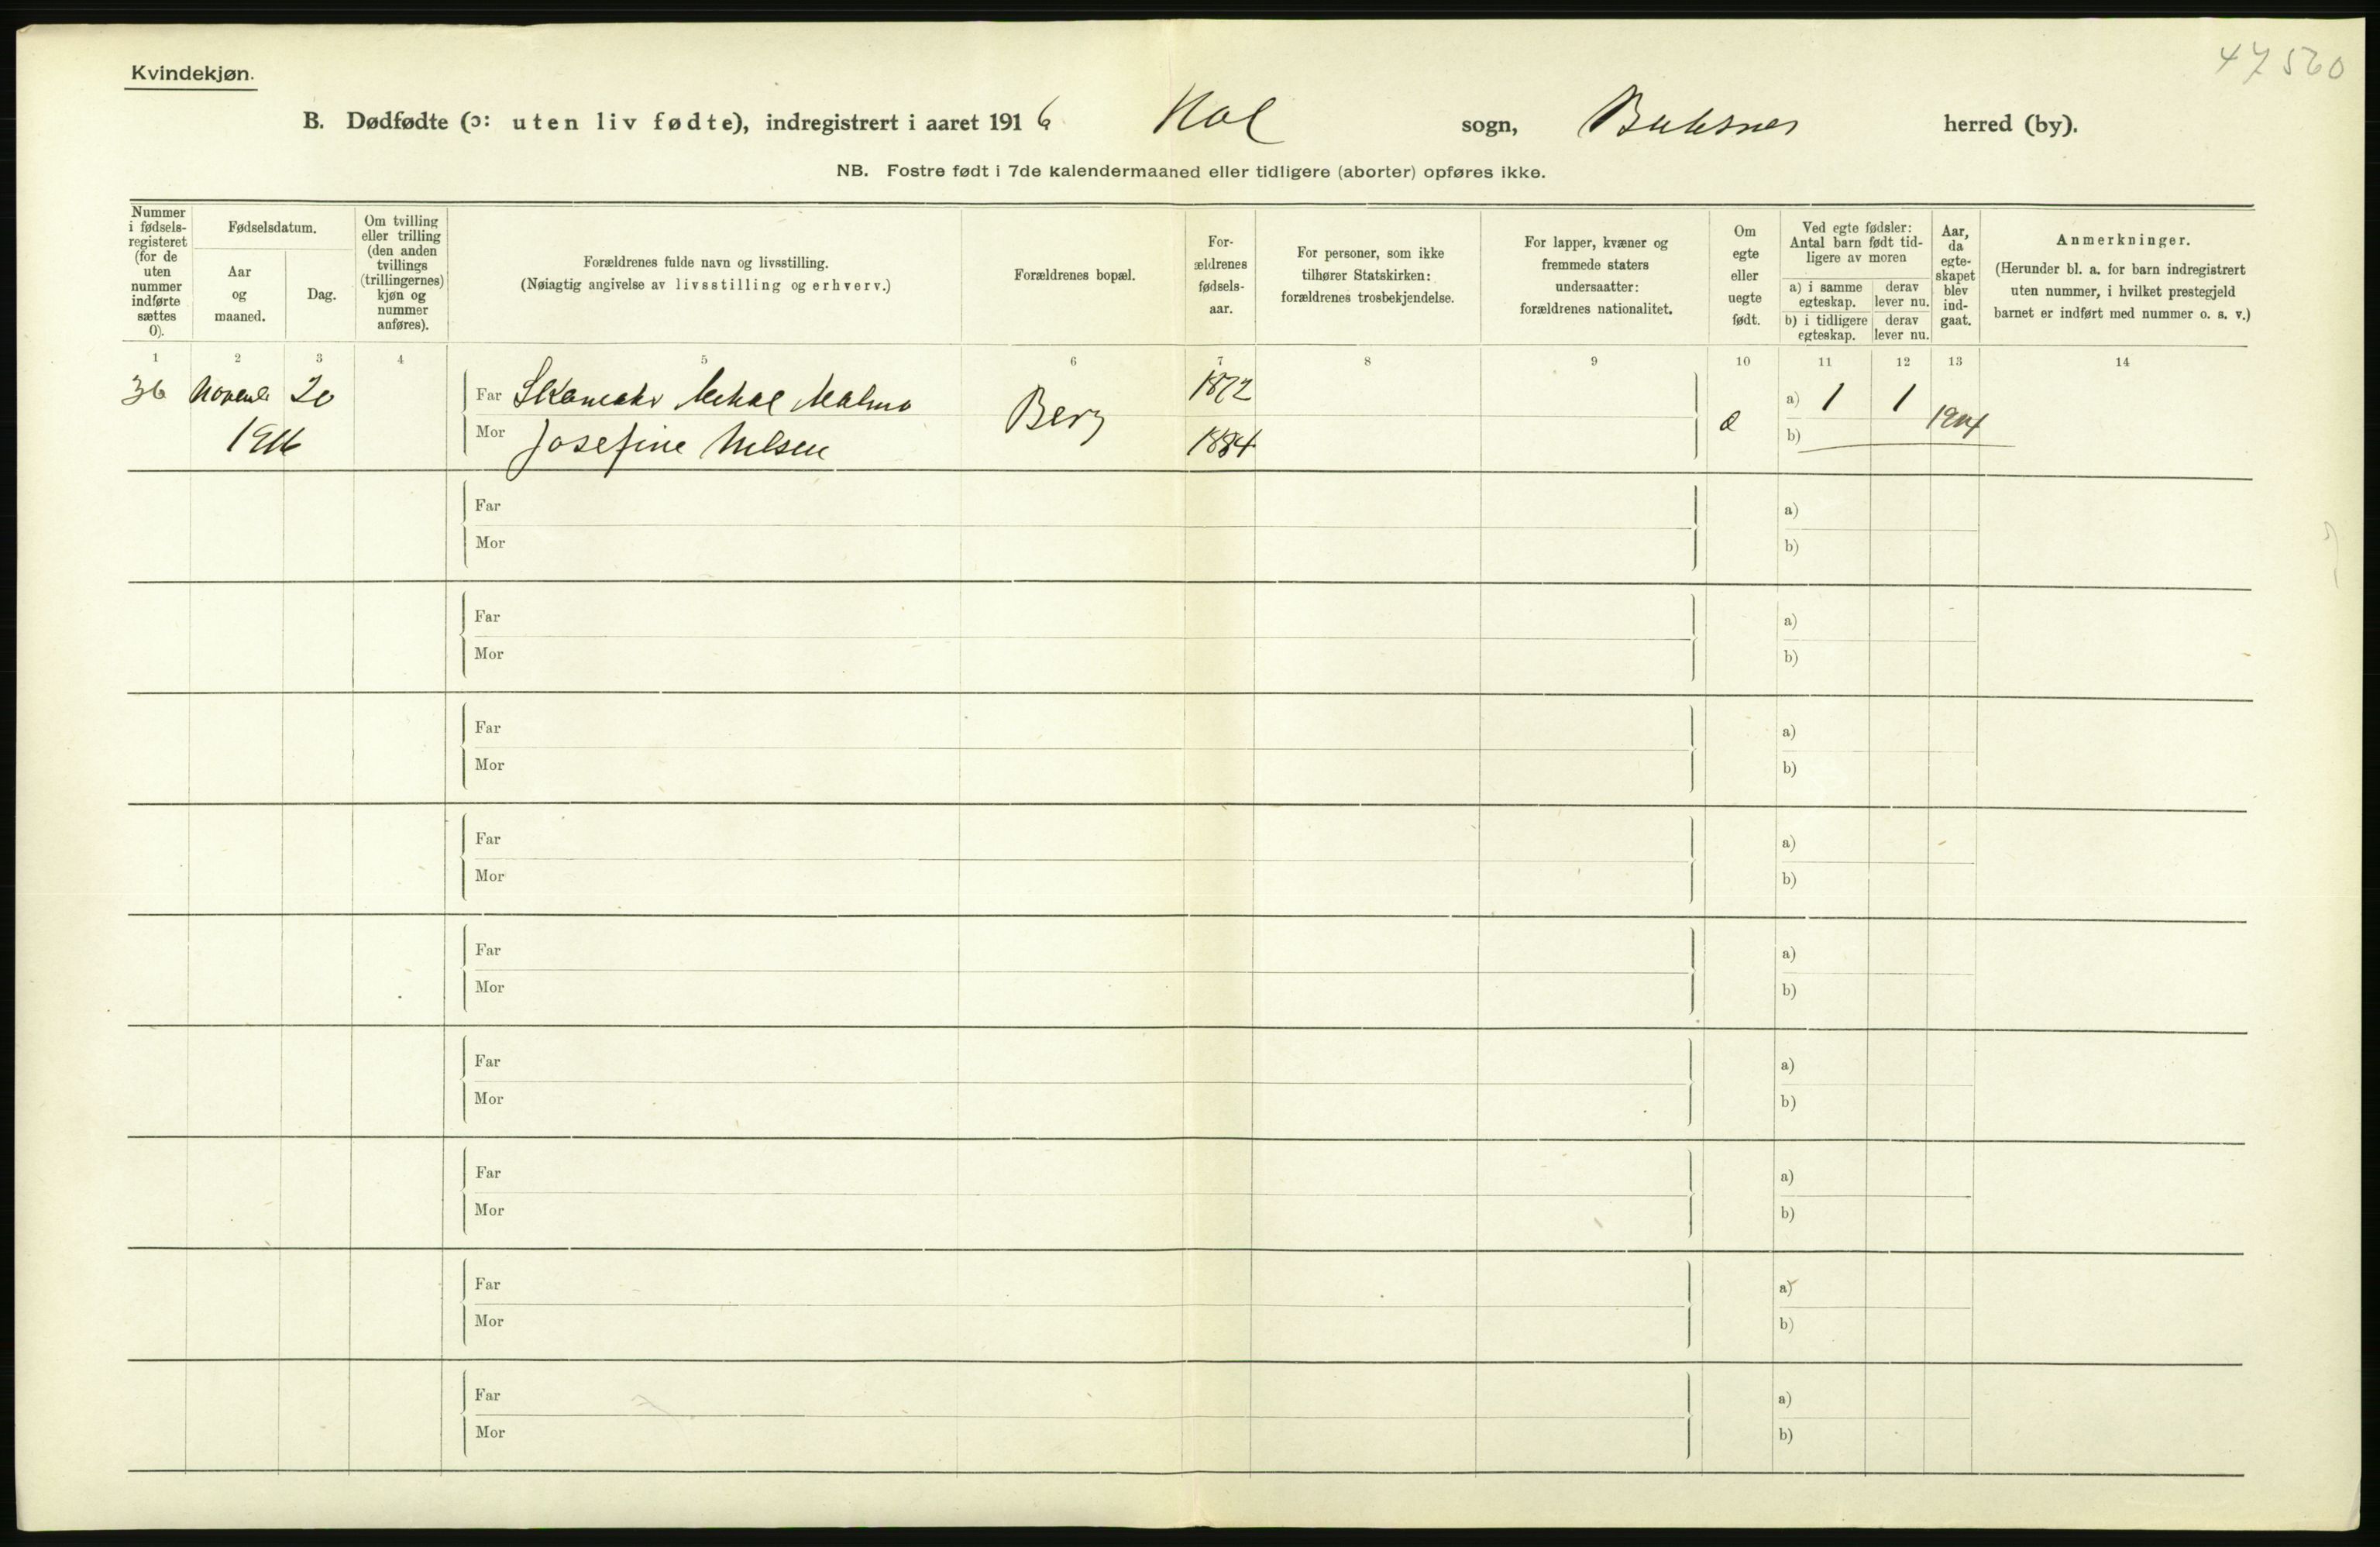 47560
Kvindekjøn.
B. Dødfødte (ɔ: uten liv fødte), indregistrert i aaret 1916 Hol sogn, Buksnes herred (by).
NB. Fostre født i 7de kalendermaaned eller tidligere (aborter) opføres ikke.
Nummer i fødsels-registeret (for de uten nummer indførte sættes 0).
Fødselsdatum.
Aar og maaned.
Dag.
Om tvilling eller trilling (den anden tvillings (trillingernes) kjøn og nummer anføres).
Forældrenes fulde navn og livsstilling.
(Nøiagtig angivelse av livsstilling og erhverv.)
Forældrenes bopæl.
For-ældrenes fødsels-aar.
For personer, som ikke tilhører Statskirken: forældrenes trosbekjendelse.
For lapper, kvæner og fremmede staters undersaatter: forældrenes nationalitet.
Om egte eller uegte født.
Ved egte fødsler: Antal barn født tid-ligere av moren
a) i samme egteskap. derav lever nu.
b) i tidligere egteskap. derav lever nu.
Aar, da egte-skapet blev ind-gaat.
Anmerkninger.
(Herunder bl. a. for barn indregistrert uten nummer, i hvilket prestegjeld barnet er indført med nummer o. s. v.)
1 2 3 4 5 6 7 8 9 10 11 12 13 14
36 Novemb 20 Far Skomaker Mikal Malmo Berg 1872 e a) 1 1 1904
1916 Mor Josefine Nilsen 1884 b)
Far a)
Mor b)
Far a)
Mor b)
Far a)
Mor b)
Far a)
Mor b)
Far a)
Mor b)
Far a)
Mor b)
Far a)
Mor b)
Far a)
Mor b)
Far a)
Mor b)